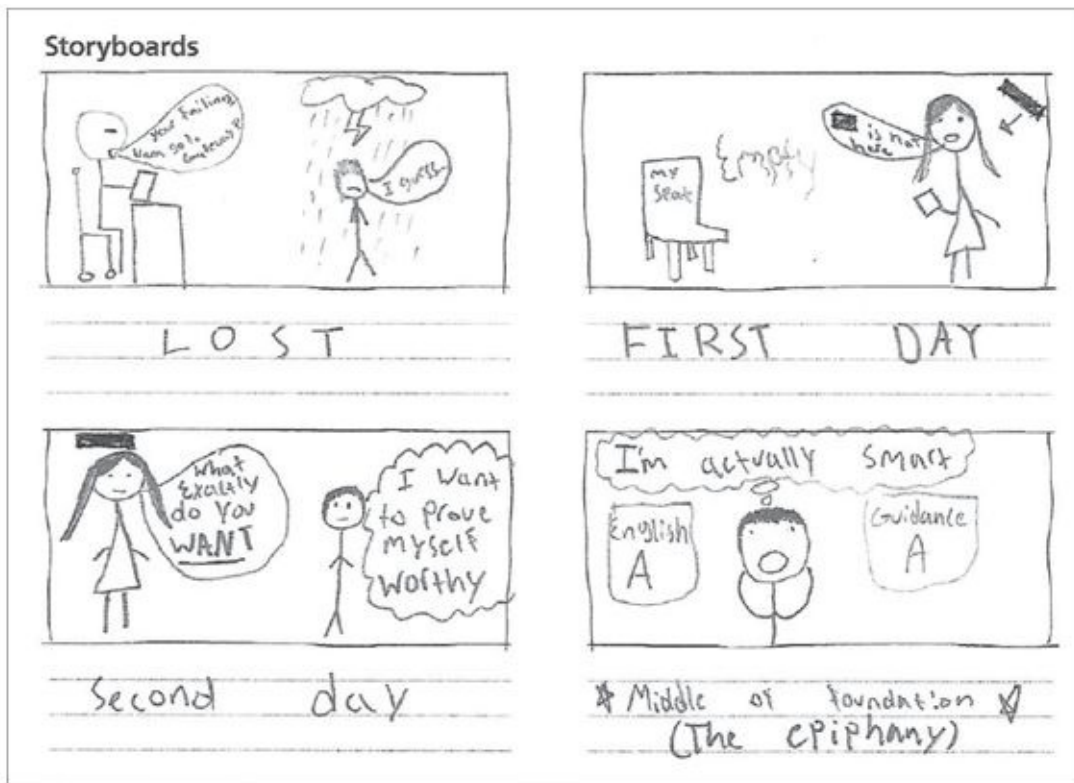 Storyboards
Your Failing!
Wan go to
Gateway?
I guess
LOST
my
Seat
Empty
is not
here
FIRST DAY
What
Exaltly
do you
WANT
I Want
to Prove
myself
worthy
Second day
I'm actually smart
English
A
Guidance
A
Middle of foundation
(The epiphany)